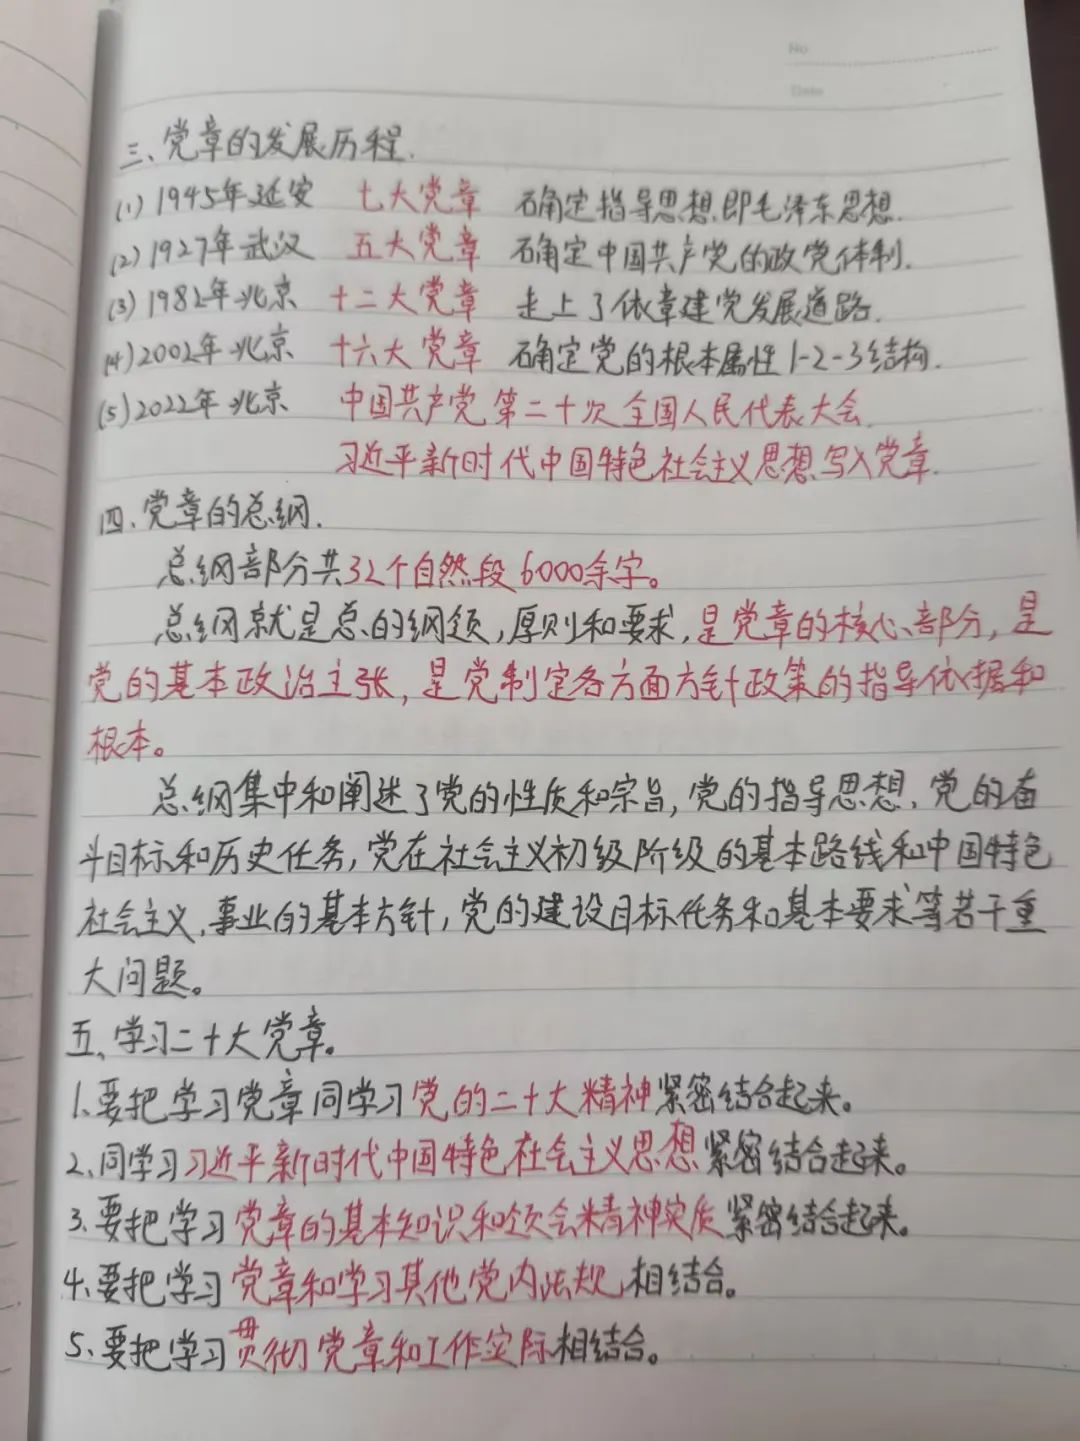 No
Date
三、党章的发展历程.
(1) 1945年延安 七大党章 确定指导思想.即毛泽东思想.
(2) 1927年武汉 五大党章 确定中国共产党的政党体制.
(3) 1982年北京 十二大党章 走上了依章建党发展道路.
(4) 2002年北京 十六大党章 确定党的根本属性 1-2-3结构.
(5) 2022年北京 中国共产党第二十次全国人民代表大会.
习近平新时代中国特色社会主义思想写入党章.
四、党章的总纲.
总纲部分共32个自然段 6000余字。
总纲就是总的纲领,原则和要求,是党章的核心部分,是
党的基本政治主张,是党制定各方面方针政策的指导依据和
根本。
总纲集中和阐述了党的性质和宗旨,党的指导思想、党的奋
斗目标和历史任务,党在社会主义初级阶级的基本路线和中国特色
社会主义.事业的基本方针,党的建设目标任务和基本要求等若干重
大问题。
五、学习二十大党章。
1、要把学习党章同学习党的二十大精神紧密结合起来。
2、同学习习近平新时代中国特色社会主义思想紧密结合起来。
3、要把学习党章的基本知识和领会精神实质紧密结合起来。
4、要把学习党章和学习其他党内法规相结合。
5、要把学习贯彻党章和工作实际相结合。